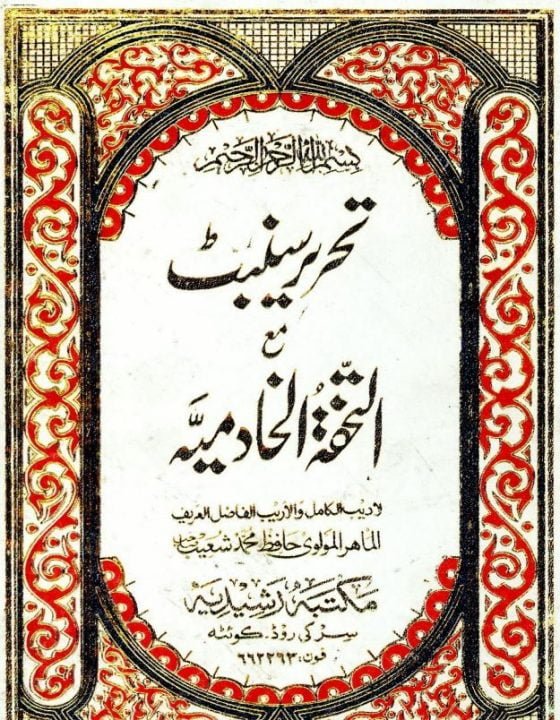 بسم الله الرحمن الرحيم
تحریر سنبٹ
مع
التحفۃ الخادمیہ
لادیب الکامل والاریب الفاضل العریف
الماهر المولوی حافظ محمد شعیب
مکتبہ رشیدیہ
سرکی روڈ۔ کوئٹہ
فون: ۶۶۲۲۶۳